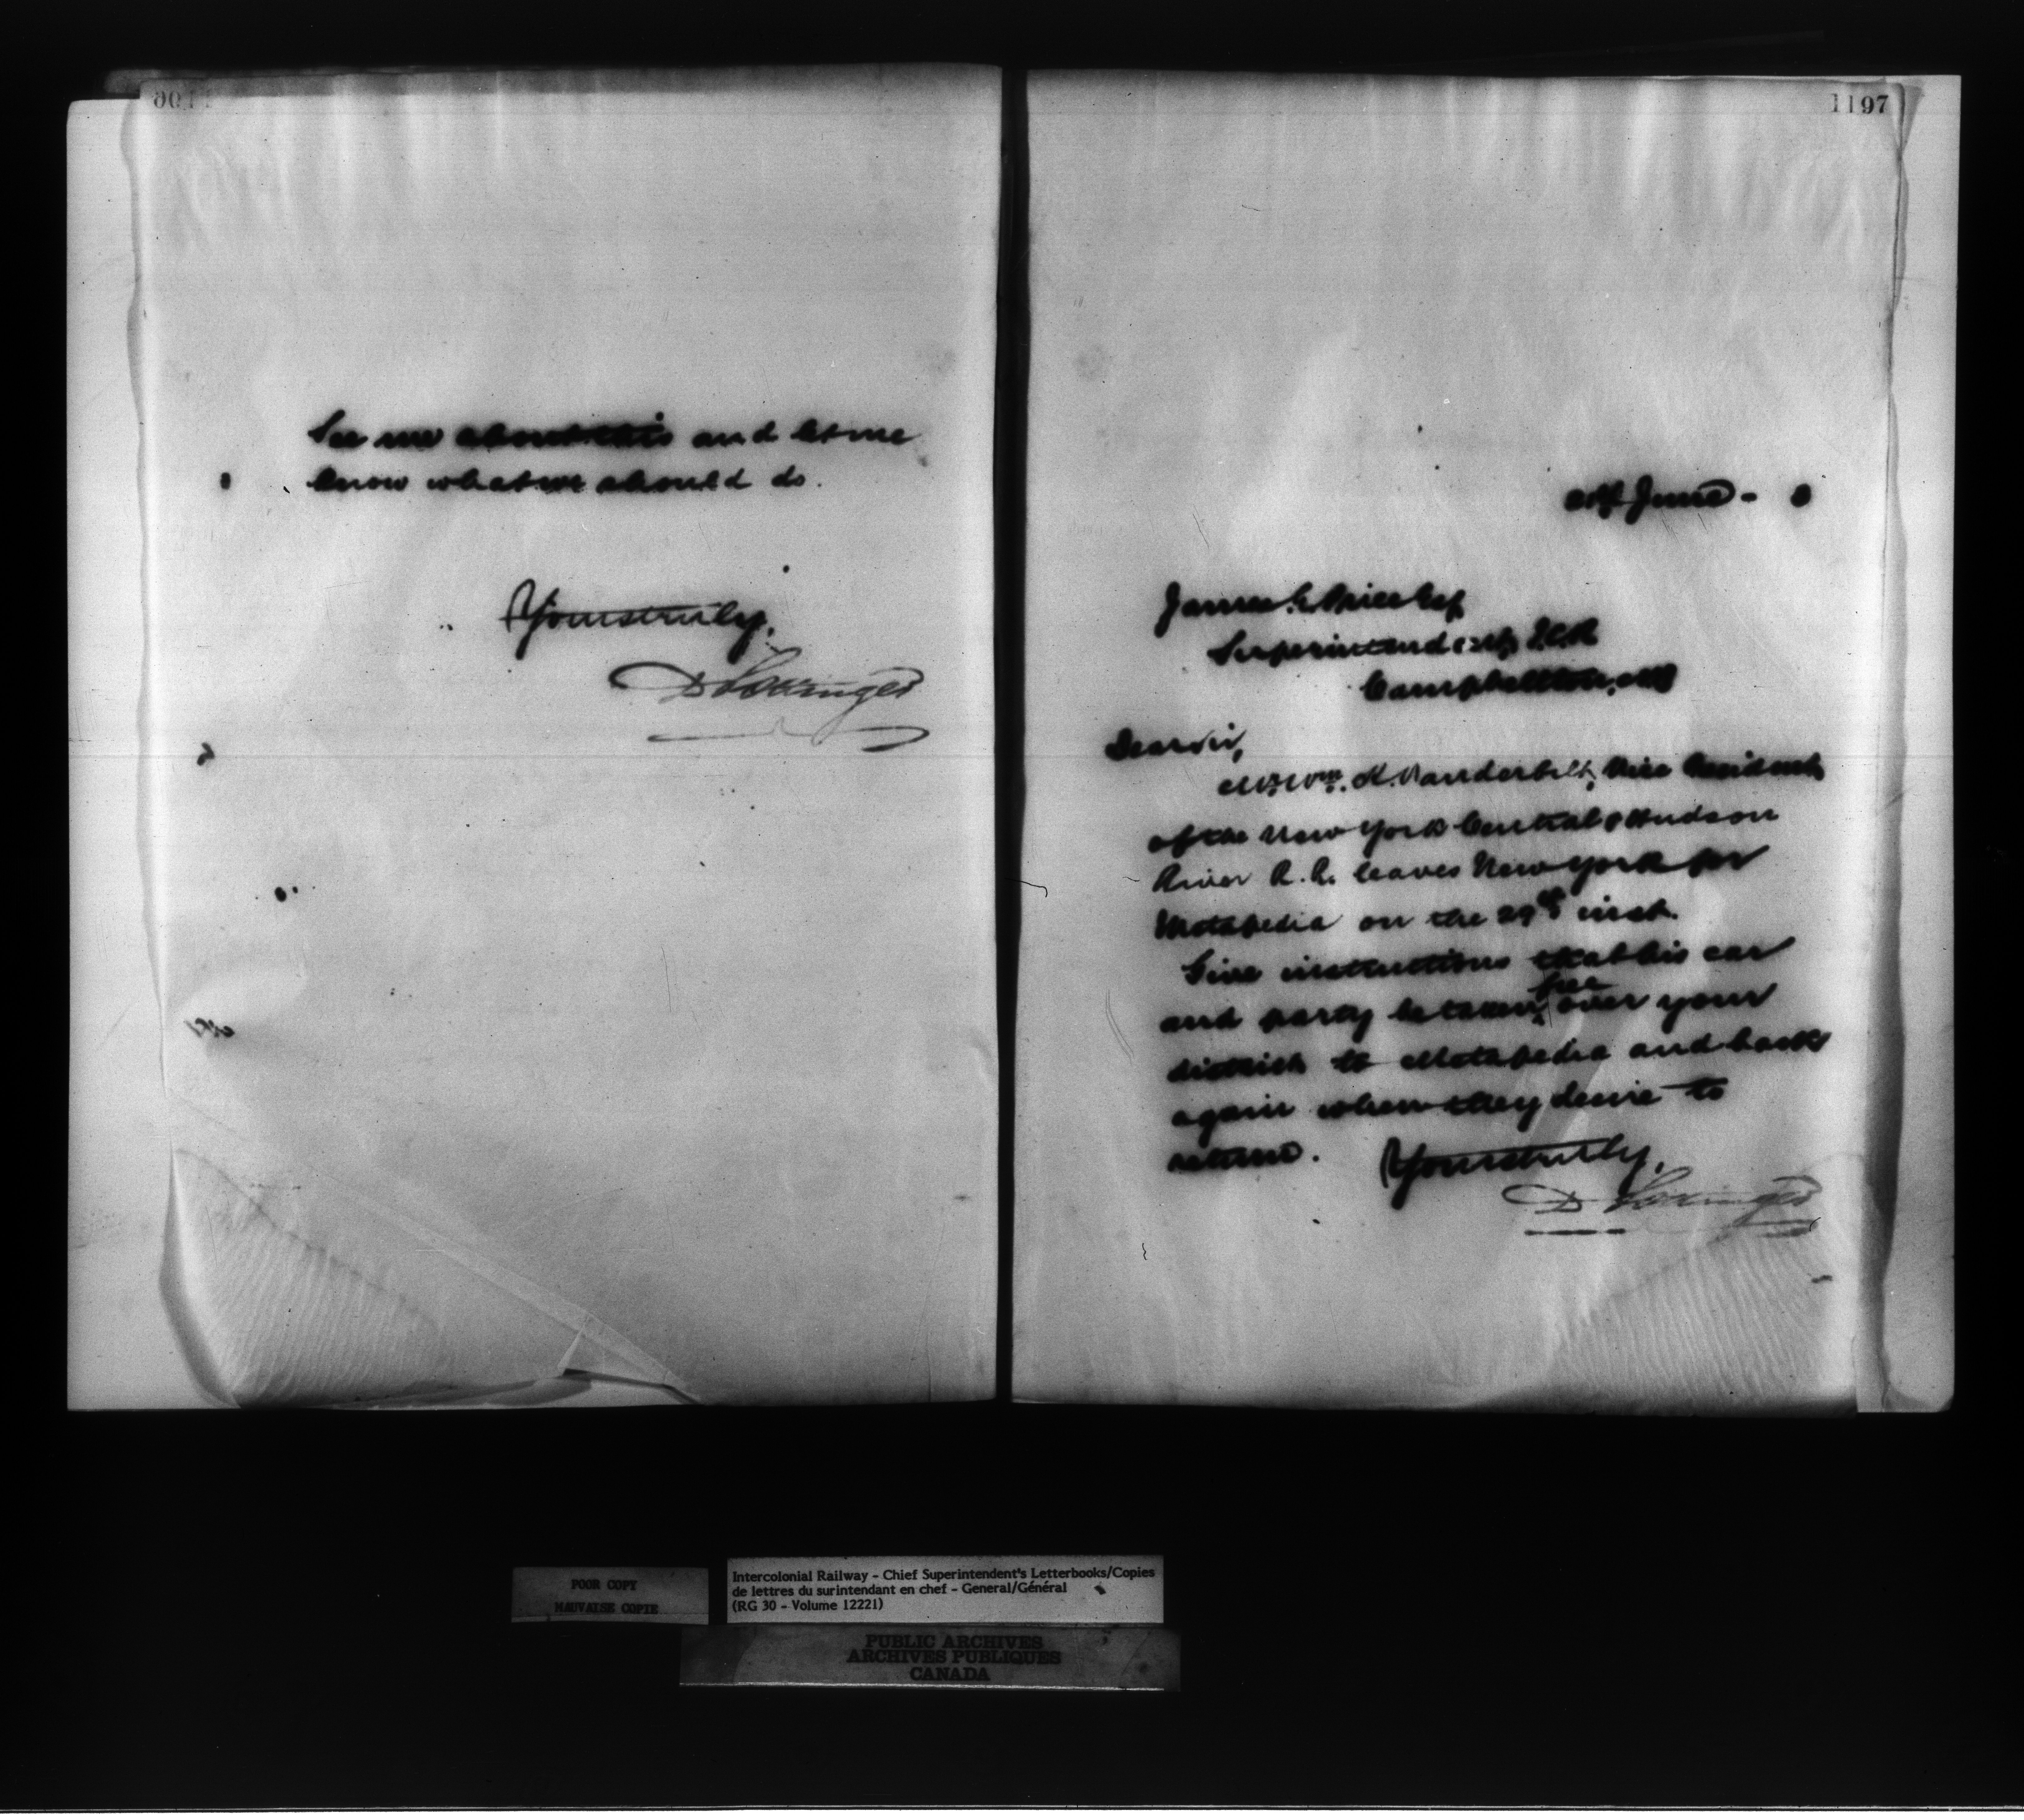 See me about this and let me
know what we should do.
Yours truly,
D Pottinger
1197
June - 8
James Price Esq
Superintendent I.C.R
Campbellton, NB
Dear Sir,
Mr. Wm. K. Vanderbilt, Vice President
of the New York Central & Hudson
River R.R. leaves New York for
Metapedia on the 29th inst.
Give instructions that his car
and party be taken free over your
district to Metapedia and back
again when they desire to
return. Yours truly,
D Pottinger
POOR COPY
MAUVAISE COPIE
Intercolonial Railway - Chief Superintendent's Letterbooks/Copies
de lettres du surintendant en chef - General/Général
(RG 30 - Volume 12221)
PUBLIC ARCHIVES
ARCHIVES PUBLIQUES
CANADA